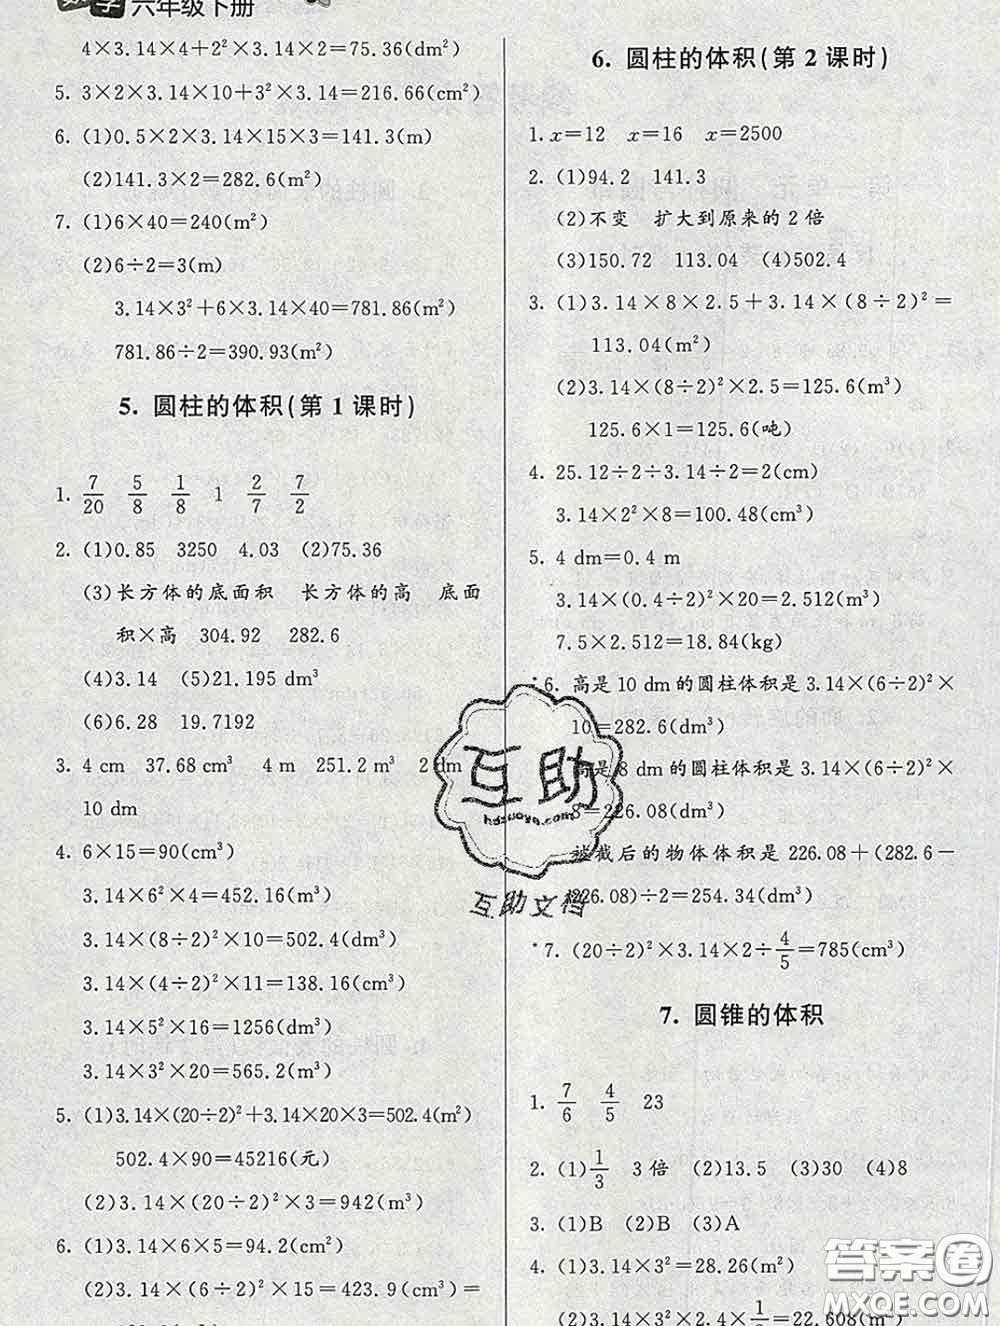 数学六年级下册
4×3.14×4+2²×3.14×2=75.36(dm²)
5. 3×2×3.14×10+3²×3.14=216.66(cm²)
6. (1)0.5×2×3.14×15×3=141.3(m)
(2)141.3×2=282.6(m²)
7. (1)6×40=240(m²)
(2)6÷2=3(m)
3.14×3²+6×3.14×40=781.86(m²)
781.86÷2=390.93(m²)
5. 圆柱的体积(第1课时)
1. 7/20 5/8 1/8 1 2/7 7/2
2. (1)0.85 3250 4.03 (2)75.36
(3)长方体的底面积 长方体的高 底面
积×高 304.92 282.6
(4)3.14 (5)21.195 dm³
(6)6.28 19.7192
3. 4 cm 37.68 cm³ 4 m 251.2 m³ 2 dm
10 dm
4. 6×15=90(cm³)
3.14×6²×4=452.16(m³)
3.14×(8÷2)²×10=502.4(dm³)
3.14×(4÷2)²×11=138.16(cm³)
3.14×5²×16=1256(dm³)
3.14×3²×20=565.2(m³)
5. (1)3.14×(20÷2)²+3.14×20×3=502.4(m²)
502.4×90=45216(元)
(2)3.14×(20÷2)²×3=942(m³)
6. (1)3.14×6×5=94.2(cm²)
(2)3.14×(6÷2)²×15=423.9(cm³)=
6. 圆柱的体积(第2课时)
1. x=12 x=16 x=2500
2. (1)94.2 141.3
(2)不变 扩大到原来的2倍
(3)150.72 113.04 (4)502.4
3. (1)3.14×8×2.5+3.14×(8÷2)²=
113.04(m²)
(2)3.14×(8÷2)²×2.5=125.6(m³)
125.6×1=125.6(吨)
4. 25.12÷2÷3.14÷2=2(cm)
3.14×2²×8=100.48(cm³)
5. 4 dm=0.4 m
3.14×(0.4÷2)²×20=2.512(m³)
7.5×2.512=18.84(kg)
*6. 高是10 dm的圆柱体积是3.14×(6÷2)²×
10=282.6(dm³)
高是8 dm的圆柱体积是3.14×(6÷2)²×
8=226.08(dm³)
被截后的物体体积是226.08+(282.6-
226.08)÷2=254.34(dm³)
*7. (20÷2)²×3.14×2÷4/5=785(cm³)
7. 圆锥的体积
1. 7/6 4/5 23
2. (1)1/3 3倍 (2)13.5 (3)30 (4)8
3. (1)B (2)B (3)A
4. (1)3.14×3²=28.26(m²)
(2)3.14×3²×2.4×1/3=22.608(m³)
互助
hdzuoye.com
互助文档
答案圈
MXQE.COM